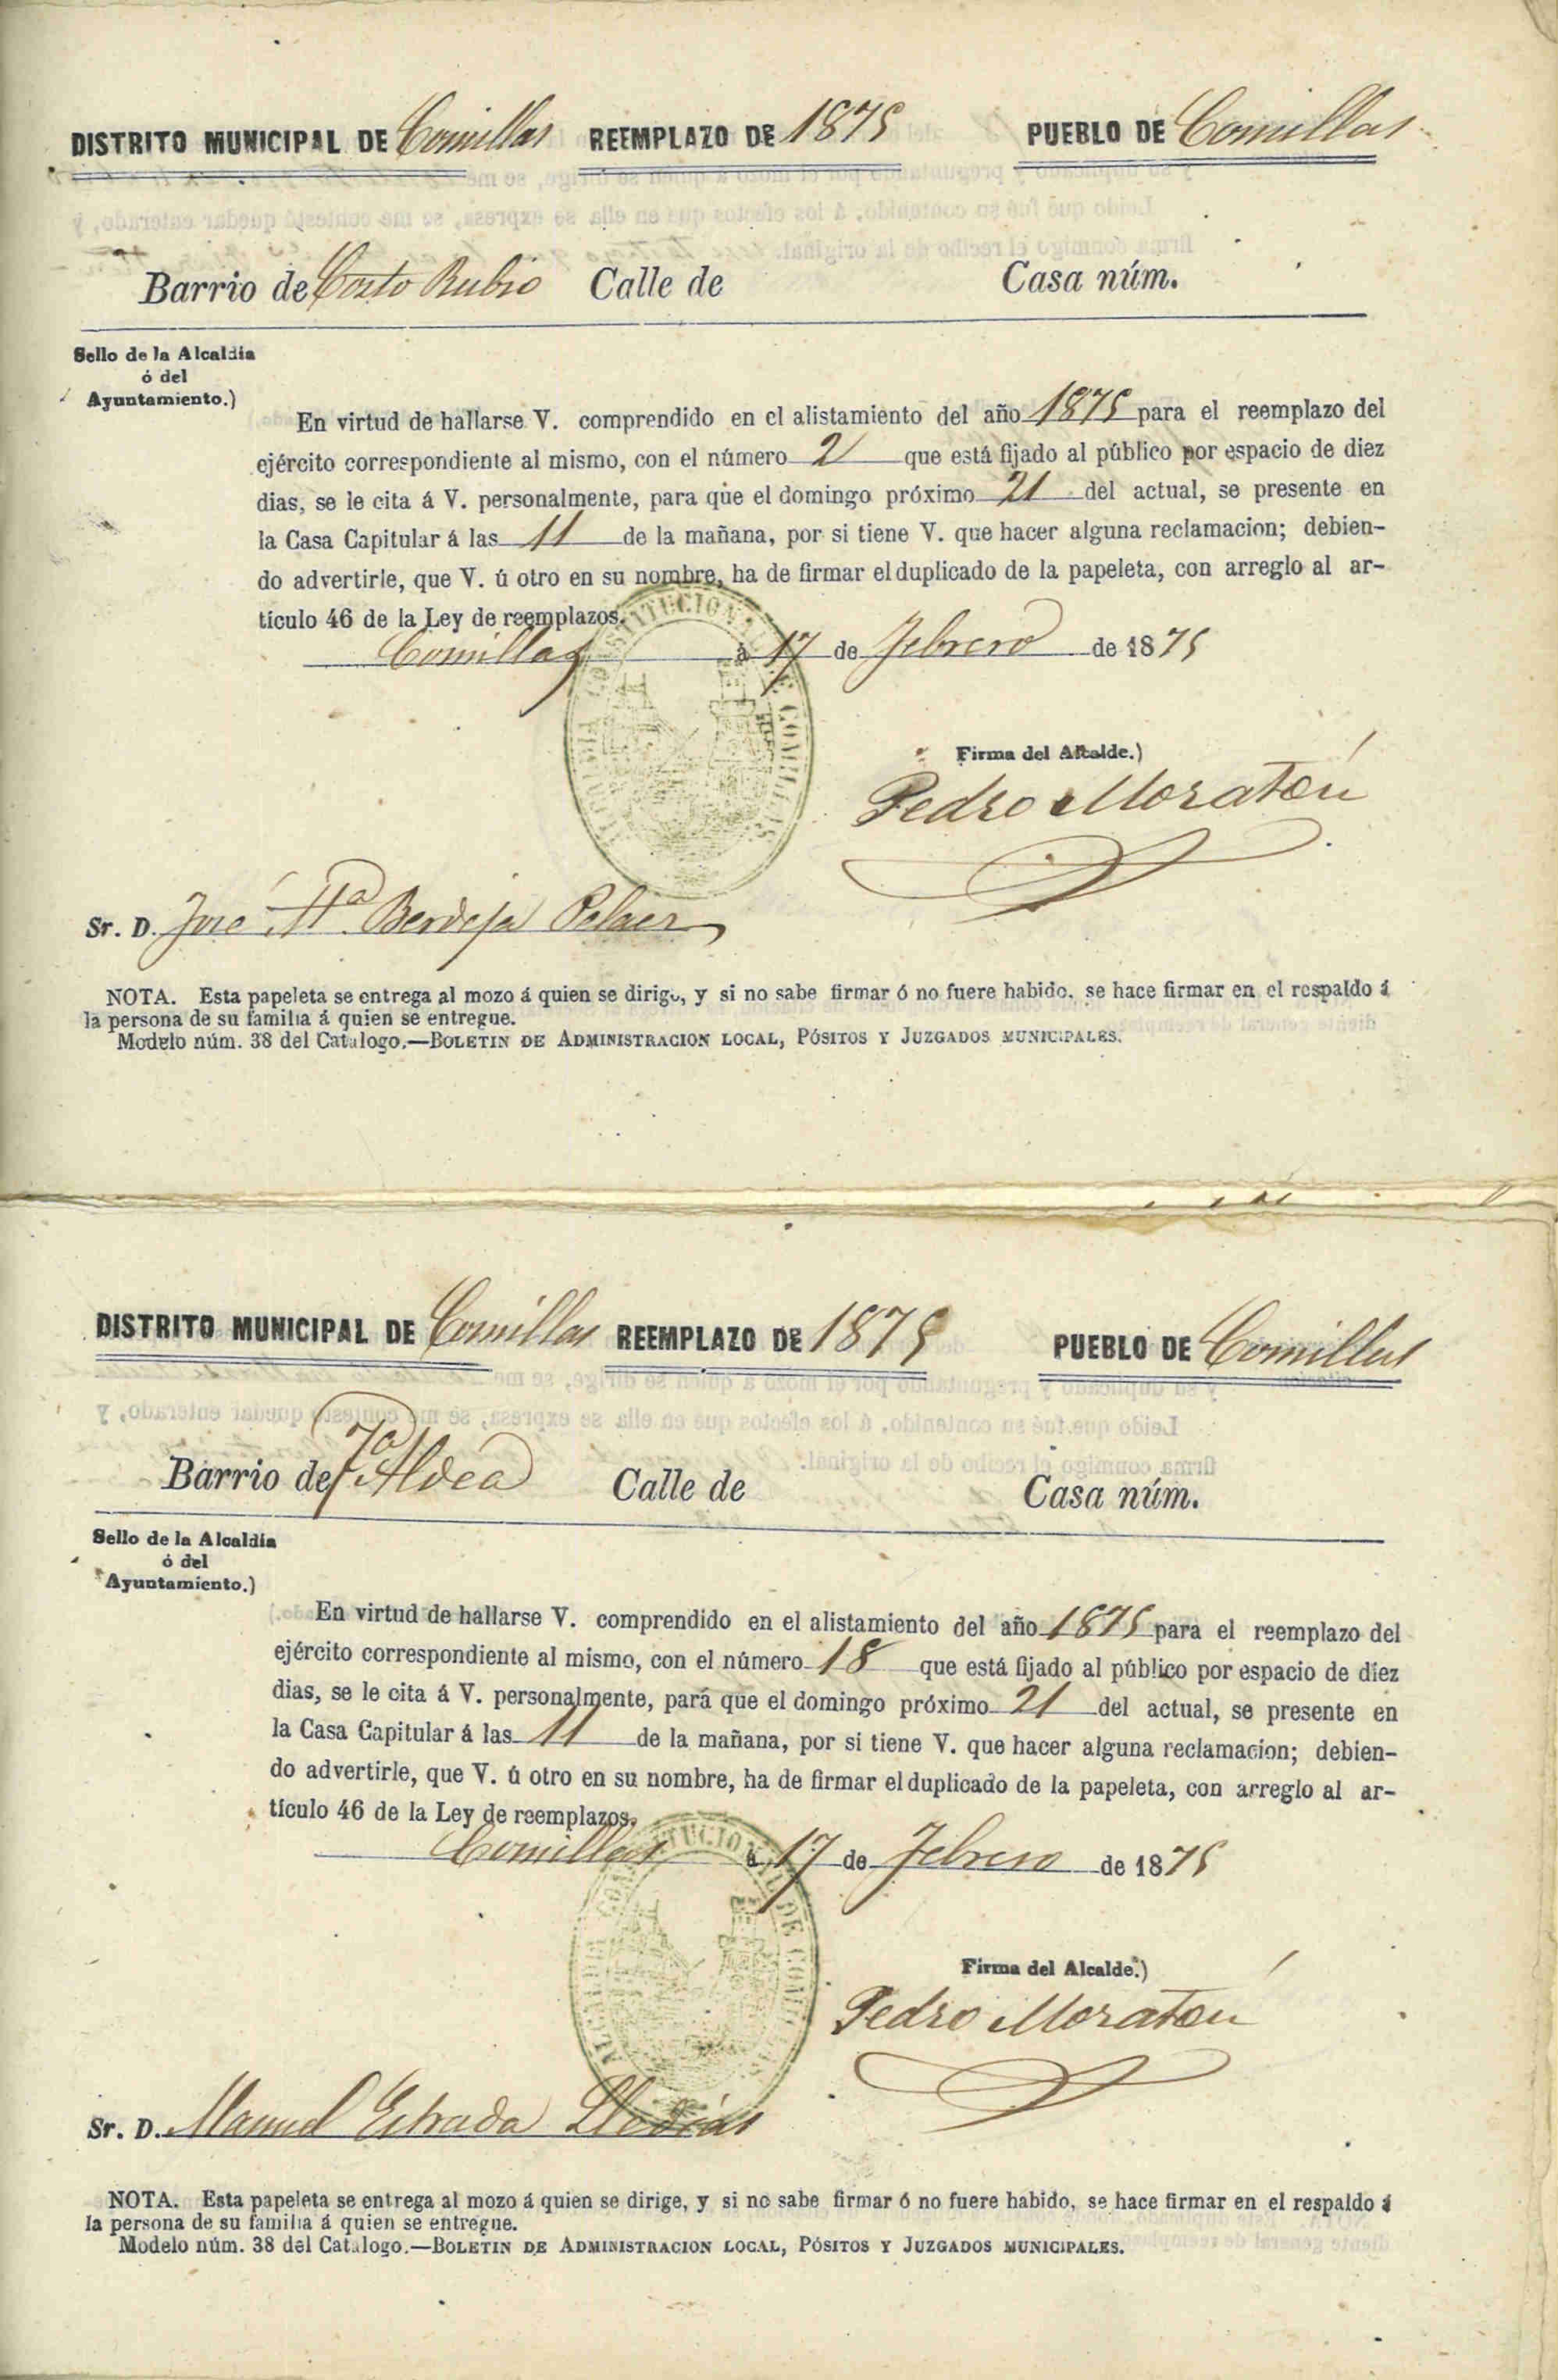 DISTRITO MUNICIPAL DE Comillas REEMPLAZO DE 1875 PUEBLO DE Comillas
Barrio de Corto Rubio Calle de Casa núm.
Sello de la Alcaldía
ó del
Ayuntamiento.)
En virtud de hallarse V. comprendido en el alistamiento del año 1875 para el reemplazo del
ejército correspondiente al mismo, con el número 2 que está fijado al público por espacio de diez
dias, se le cita á V. personalmente, para que el domingo próximo 21 del actual, se presente en
la Casa Capitular á las 11 de la mañana, por si tiene V. que hacer alguna reclamacion; debien-
do advertirle, que V. ú otro en su nombre, ha de firmar el duplicado de la papeleta, con arreglo al ar-
tículo 46 de la Ley de reemplazos.
Comillas á 17 de Febrero de 1875
Firma del Alcalde.)
Pedro Moratón
Sr. D. José Mª Berdeja Pelaez
NOTA. Esta papeleta se entrega al mozo á quien se dirige, y si no sabe firmar ó no fuere habido, se hace firmar en el respaldo á
la persona de su familia á quien se entregue.
Modelo núm. 38 del Catalogo.—BOLETIN DE ADMINISTRACION LOCAL, PÓSITOS Y JUZGADOS MUNICIPALES.
DISTRITO MUNICIPAL DE Comillas REEMPLAZO DE 1875 PUEBLO DE Comillas
Barrio de Aldea Calle de Casa núm.
Sello de la Alcaldía
ó del
Ayuntamiento.)
En virtud de hallarse V. comprendido en el alistamiento del año 1875 para el reemplazo del
ejército correspondiente al mismo, con el número 18 que está fijado al público por espacio de diez
dias, se le cita á V. personalmente, para que el domingo próximo 21 del actual, se presente en
la Casa Capitular á las 11 de la mañana, por si tiene V. que hacer alguna reclamacion; debien-
do advertirle, que V. ú otro en su nombre, ha de firmar el duplicado de la papeleta, con arreglo al ar-
tículo 46 de la Ley de reemplazos.
Comillas á 17 de Febrero de 1875
Firma del Alcalde.)
Pedro Moratón
Sr. D. Manuel Estrada Lledías
NOTA. Esta papeleta se entrega al mozo á quien se dirige, y si no sabe firmar ó no fuere habido, se hace firmar en el respaldo á
la persona de su familia á quien se entregue.
Modelo núm. 38 del Catalogo.—BOLETIN DE ADMINISTRACION LOCAL, PÓSITOS Y JUZGADOS MUNICIPALES.